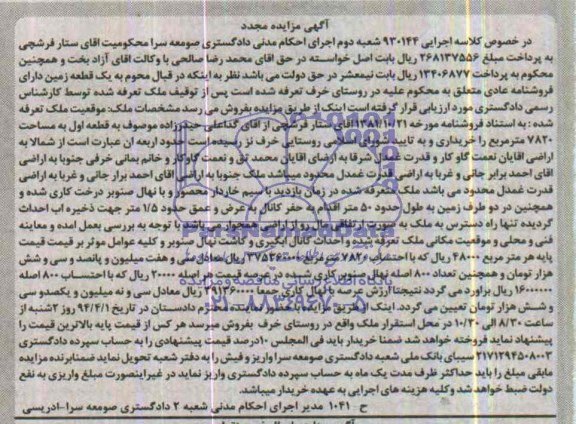 آگهی مزایده مجدد
در خصوص کلاسه اجرایی ۹۳۰۱۴۴ شعبه دوم اجرای احکام مدنی دادگستری صومعه سرا محکومیت اقای ستار فرشچی
به پرداخت مبلغ ۲۶۸۱۳۷۵۵۶ ریال بابت اصل خواسته در حق اقای محمد رضا صالحی با وکالت اقای آزاد بخت و همچنین
محکوم به پرداخت ۱۳۴۰۶۸۷۷ ریال بابت نیمعشر در حق دولت می باشد نظر به اینکه در قبال محوم به یک قطعه زمین دارای
فروشنامه عادی متعلق به محکوم علیه در روستای خرف تعرفه شده است پس از توقیف ملک تعرفه شده توسط کارشناس
رسمی دادگستری مورد ارزیابی قرار گرفته است اینک از طریق مزایده بفروش می رسد مشخصات ملک: موقعیت ملک تعرفه
شده : به استناد فروشنامه مورخه ۱۳۸۱/۱۰/۲۱ اقای ستار فرشچی از اقای گداعلی حیدرزاده موصوف به قطعه اول به مساحت
۷۸۲۰ مترمربع را خریداری و به تایید شورای اسلامی روستایی خرف نیز رسیده است حدود اربعه ان عبارت است از شمالا به
اراضی اقایان نعمت گاو کار و قدرت غمدل شرقا به اراضای اقایان محمد تقی و نعمت گاوکار و خانم بمانی خرفی جنوبا به اراضی
اقای احمد برابر جانی و غربا به اراضی قدرت غمدل محدود میباشد ملک جنوبا به اراضی اقای احمد برار جانی و غربا به اراضی
قدرت غمدل محدود می باشد ملک تعرفه شده در زمان بازدید با سیم خاردار محصور و با نهال صنوبر درخت کاری شده و
همچنین در دو طرف زمین به طول حدود ۵۰ متر اقدام به حفر کانال به عرض و عمق حدود ۱/۵ متر جهت ذخیره اب احداث
گردیده تنها راه دسترس به ملک به صورت ارتفاقی مال رو از اراضی همجوار می باشد با توجه به بررسی بعمل امده و معاینه
فنی و محلی و موقعیت مکانی ملک تعرفه شده و احداث کانال آبگیری و کاشت نهال صنوبر و کلیه عوامل موثر بر قیمت قیمت
پایه هر متر مربع ۴۸۰۰۰ ریال که با احتساب ۷۸۲۰ متر مربع ۳۷۵۳۶۰۰۰۰ ریال معادل سی و هفت میلیون و پانصد و سی و شش
هزار تومان و همچنین تعداد ۸۰۰ اصله نهال صنوبر کاری شده در عرصه قیمت هر اصله ۲۰۰۰۰ ریال که با احتساب ۸۰۰ اصله
۱۶۰۰۰۰۰۰ ریال براورد می گردد نتیجتا ارزش عرصه با نهال کاری جمعا ۳۹۱۳۶۰۰۰۰ ریال معادل سی و نه میلیون و یکصدو سی
و شش هزار تومان تعیین می گردد. اینک از طریق مزایده با حضور نماینده محترم دادستان در تاریخ ۹۴/۴/۱ روز ۲شنبه از
ساعت ۸/۳۰ الی ۱۰/۳۰ در محل استقرار ملک واقع در روستای خرف بفروش میرسد هر کس از قیمت پایه بالاترین قیمت را
پیشنهاد نماید فروخته خواهد شد ضمنا خریدار باید فی المجلس ۱۰درصد قیمت پیشنهادی را به حساب سپرده دادگستری
۲۱۷۱۲۹۴۵۰۸۰۰۳ سیبای بانک ملی شعبه دادگستری صومعه سرا واریز و فیش را به دفتر شعبه تحویل نماید ضمنابرنده مزایده
مابقی مبلغ را باید حداکثر ظرف مدت یک ماه به حساب سپرده دادگستری واریز نماید در غیراینصورت مبلغ واریزی به نفع
دولت ضبط خواهد شد وکلیه هزینه های اجرایی به عهده خریدار میباشد.
ح ۱۰۴۱ مدیر اجرای احکام مدنی شعبه ۲ دادگستری صومعه سرا-ادریسی
پایگاه اطلاع رسانی مناقصه و مزایده
۰۲۱-۸۸۳۴۹۶۷۰-۵